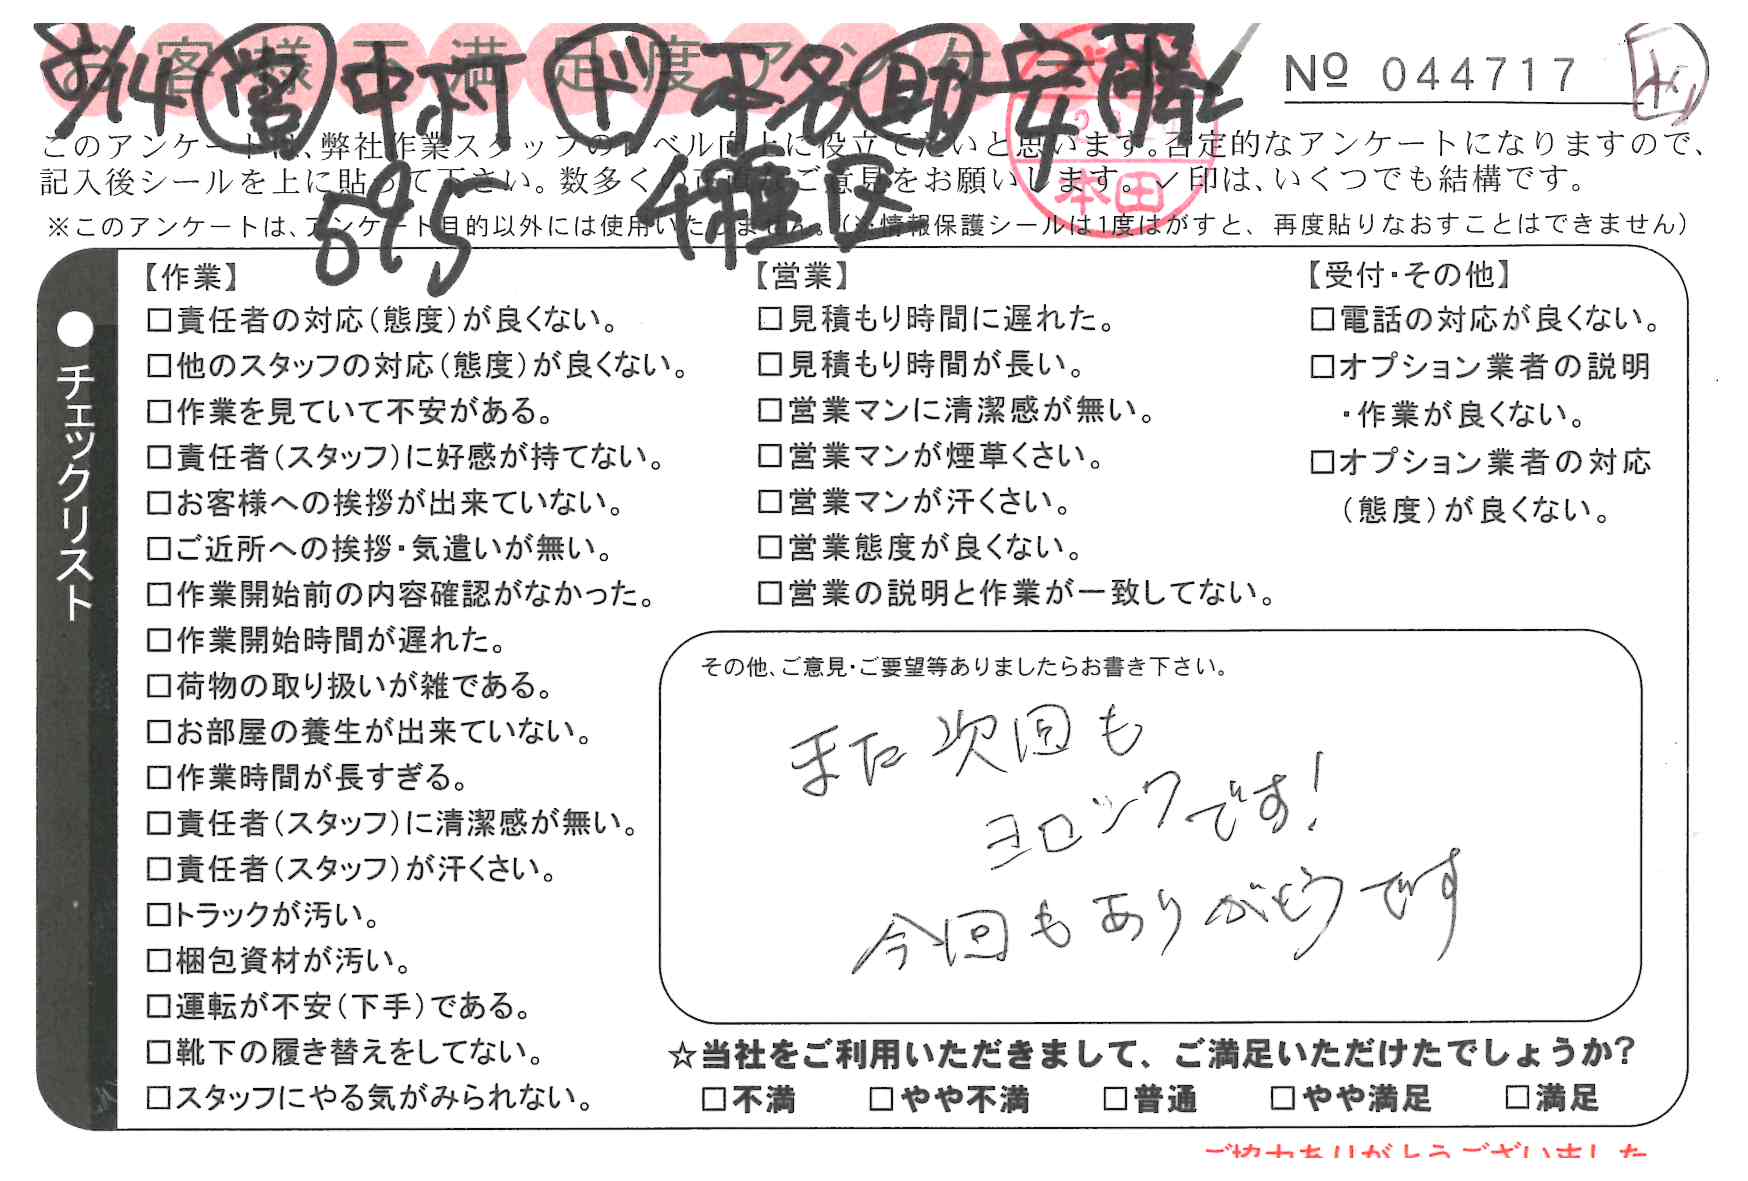 お客様不満足度アンケート
8/14 営 中村 ド 平名 助 安勝
№ 044717
このアンケートは、弊社作業スタッフのレベル向上に役立てたいと思います。否定的なアンケートになりますので、
記入後シールを上に貼って下さい。数多くの正直なご意見をお願いします。✓印は、いくつでも結構です。
※このアンケートは、アンケート目的以外には使用いたしません。(※情報保護シールは1度はがすと、再度貼りなおすことはできません)
本田
695
●チェックリスト
【作業】
□責任者の対応(態度)が良くない。
□他のスタッフの対応(態度)が良くない。
□作業を見ていて不安がある。
□責任者(スタッフ)に好感が持てない。
□お客様への挨拶が出来ていない。
□ご近所への挨拶・気遣いが無い。
□作業開始前の内容確認がなかった。
□作業開始時間が遅れた。
□荷物の取り扱いが雑である。
□お部屋の養生が出来ていない。
□作業時間が長すぎる。
□責任者(スタッフ)に清潔感が無い。
□責任者(スタッフ)が汗くさい。
□トラックが汚い。
□梱包資材が汚い。
□運転が不安(下手)である。
□靴下の履き替えをしてない。
□スタッフにやる気がみられない。
【営業】
□見積もり時間に遅れた。
□見積もり時間が長い。
□営業マンに清潔感が無い。
□営業マンが煙草くさい。
□営業マンが汗くさい。
□営業態度が良くない。
□営業の説明と作業が一致してない。
【受付・その他】
□電話の対応が良くない。
□オプション業者の説明
・作業が良くない。
□オプション業者の対応
(態度)が良くない。
その他、ご意見・ご要望等ありましたらお書き下さい。
また次回も
ヨロシクです!
今回もありがとうです
☆当社をご利用いただきまして、ご満足いただけたでしょうか?
□不満 □やや不満 □普通 □やや満足 □満足
ご協力ありがとうございました